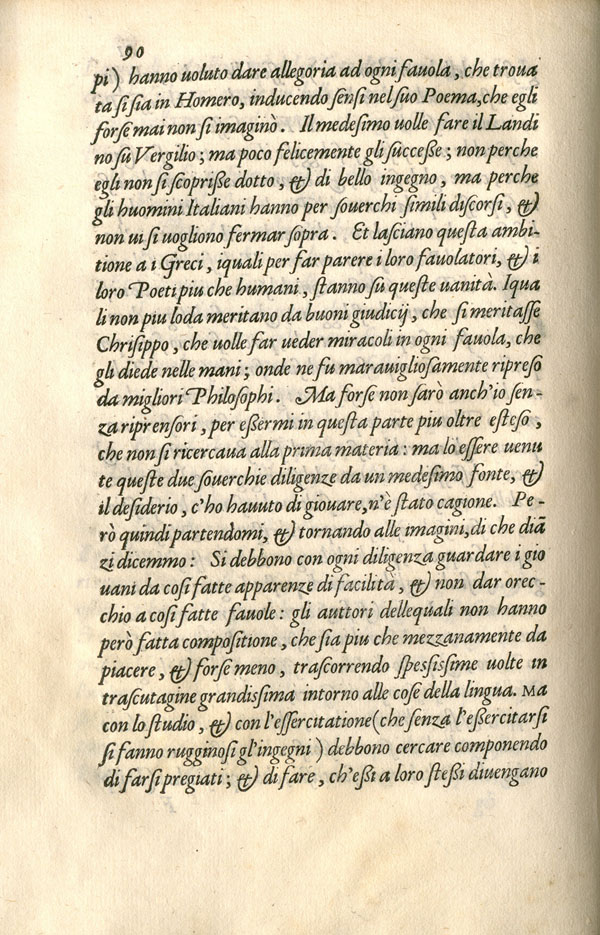 90
pi) hanno uoluto dare allegoria ad ogni fauola, che troua
ta si sia in Homero, inducendo sensi nel suo Poema, che egli
forse mai non si imaginò. Il medesimo uolle fare il Landi
no sù Vergilio; ma poco felicemente gli succeße; non perche
egli non si scopriße dotto, & di bello ingegno, ma perche
gli huomini Italiani hanno per souerchi simili discorsi, &
non ui si uogliono fermar sopra. Et lasciano questa ambi-
tione a i Greci, iquali per far parere i loro fauolatori, & i
loro Poeti piu che humani, stanno sù queste uanità. Iqua
li non piu loda meritano da buoni giudicij, che si meritasse
Chrisippo, che uolle far ueder miracoli in ogni fauola, che
gli diede nelle mani; onde ne fu marauigliosamente ripreso
da migliori Philosophi. Ma forse non sarò anch'io sen-
za riprensori, per eßermi in questa parte piu oltre esteso,
che non si ricercaua alla prima materia: ma lo essere uenu
te queste due souerchie diligenze da un medesimo fonte, &
il desiderio, c'ho hauuto di giouare, n'è stato cagione. Pe-
rò quindi partendomi, & tornando alle imagini, di che diā
zi dicemmo: Si debbono con ogni diligenza guardare i gio
uani da cosi fatte apparenze di facilità, & non dar orec-
chio a cosi fatte fauole: gli auttori dellequali non hanno
però fatta compositione, che sia piu che mezzanamente da
piacere, & forse meno, trascorrendo speßißime uolte in
trascutagine grandissima intorno alle cose della lingua. Ma
con lo studio, & con l'essercitatione (che senza l'eßercitarsi
si fanno rugginosi gl'ingegni) debbono cercare componendo
di farsi pregiati; & di fare, ch'eßi a loro steßi diuengano